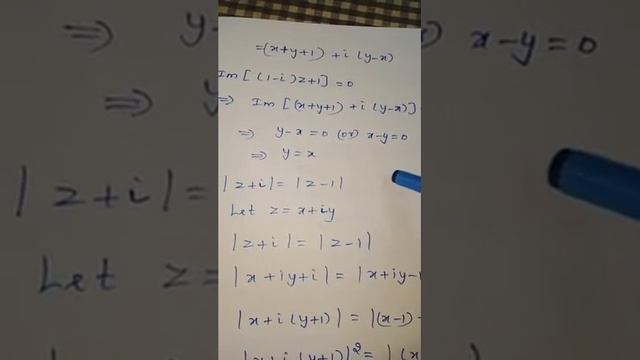 =(x+y+1) + i (y-x)
Im [ (1-i)z+1] = 0
⇒ Im [(x+y+1) + i (y-x)]
⇒ y-x=0 (or) x-y=0
⇒ y=x
|z+i| = |z-1|
Let z = x+iy
|z+i| = |z-1|
|x+iy+i| = |x+iy-1
|x+i(y+1)| = |(x-1)
|x+i(y+1)|² = |(x